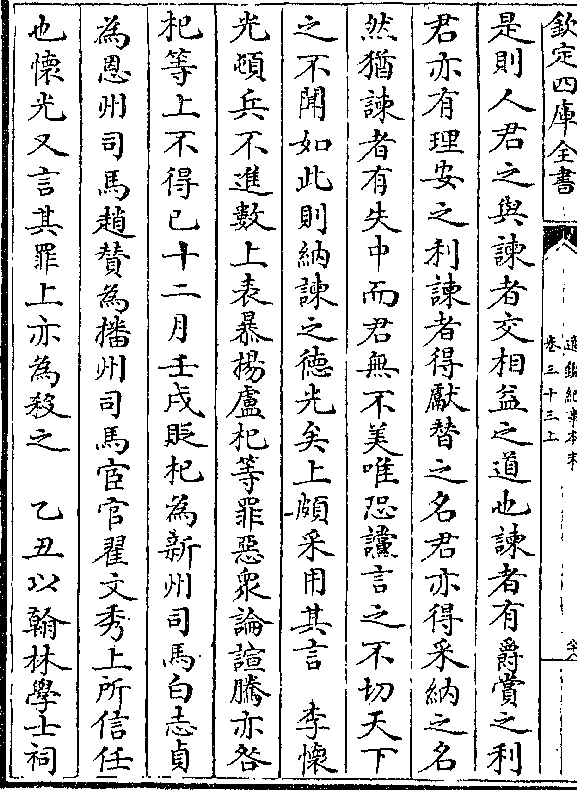 欽定四庫全書
通鑑紀事本末
卷三十三上
是則人君之與諫者交相益之道也諫者有爵賞之利
君亦有理安之利諫者得獻替之名君亦得采納之名
然猶諫者有失中而君無不美唯恐讜言之不切天下
之不聞如此則納諫之德光矣上頗采用其言 李懷
光頓兵不進數上表暴揚盧杞等罪惡衆論諠騰亦咎
杞等上不得已十二月壬戌貶杞為新州司馬白志貞
為恩州司馬趙贊為播州司馬宦官翟文秀上所信任
也懷光又言其罪上亦為殺之 乙丑以翰林學士祠